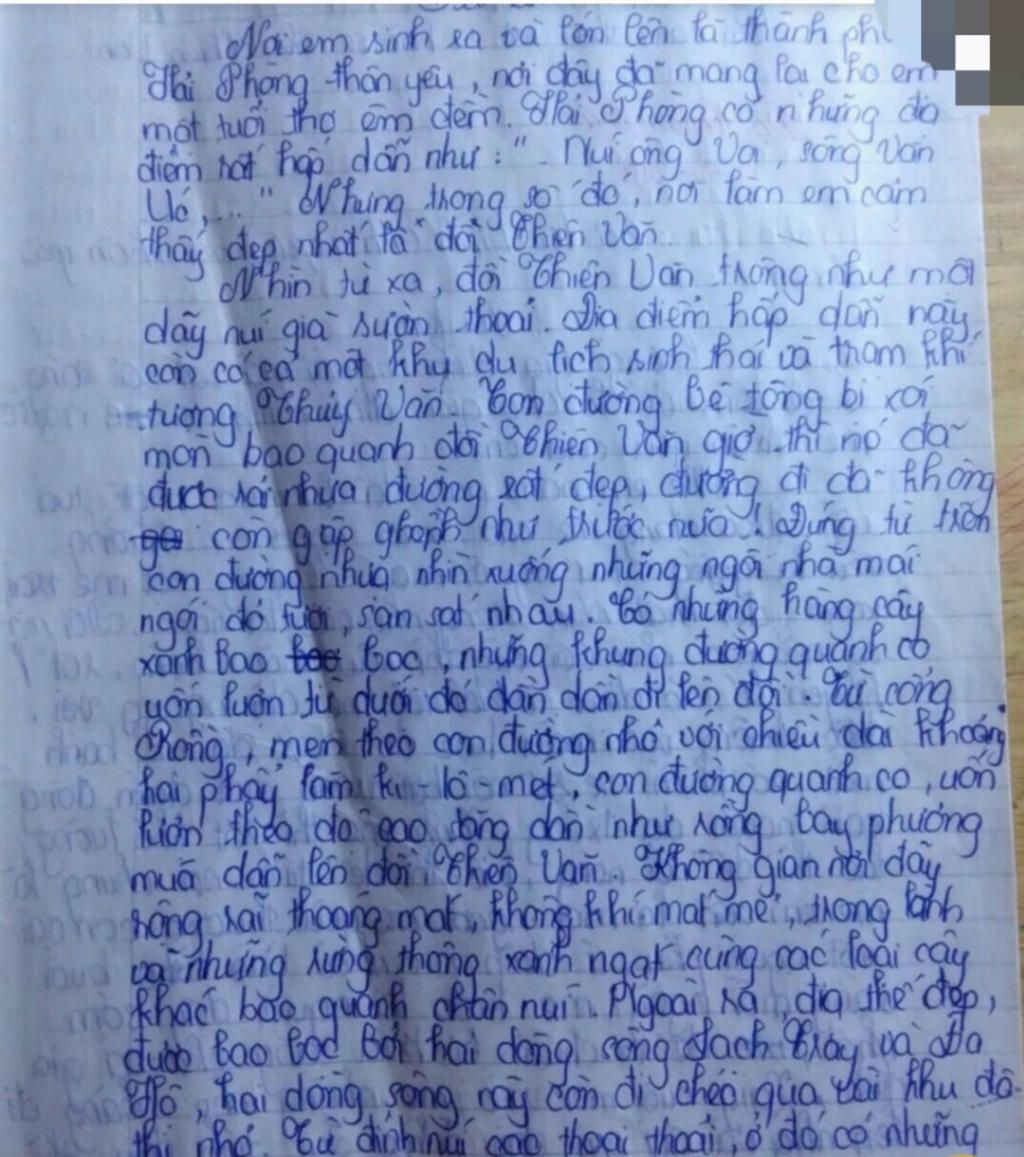 Nơi em sinh ra và lớn lên là thành phố
Hải Phòng thân yêu, nơi đây đã mang lại cho em
một tuổi thơ êm đềm. Hải Phòng có những địa
điểm rất hấp dẫn như: " Núi ông Voi, sông Văn
Úc,... " Nhưng trong số đó, nơi làm em cảm
thấy đẹp nhất là đồi Thiên Văn.
Nhìn từ xa, đồi Thiên Văn trông như một
dãy núi già sườn thoai. Địa điểm hấp dẫn này
còn có cả một khu du lịch sinh thái và tham khí
tượng Thủy Văn. Con đường bê tông bị xói
mòn bao quanh đồi Thiên Văn giờ thì nó đã
được rải nhựa đường rất đẹp, đường đi đã không
còn gập ghềnh như trước nữa! Đứng từ trên
con đường nhựa nhìn xuống những ngôi nhà mái
ngói đỏ tươi, san sát nhau. Có những hàng cây
xanh bao bọc, những khung đường quanh co
uốn lượn từ dưới đó dần dần đi lên đồi. Từ cổng
Rồng, men theo con đường nhỏ với chiều dài khoảng
hai phẩy lăm ki-lô-mét, con đường quanh co, uốn
lượn theo độ cao tăng dần như rồng bay phượng
múa dẫn lên đồi Thiên Văn. Không gian nơi đây
rộng rãi thoáng mát, không khí mát mẻ, trong lành
và những rừng thông xanh ngát cùng các loài cây
khác bao quanh chân núi. Ngoài ra, địa thế đẹp,
được bao bọc bởi hai dòng sông Lạch Tray và Đa
Độ, hai dòng sông này còn đi chéo qua vài khu đô
thị nhỏ. Từ đỉnh núi cao thoai thoải, ở đó có những